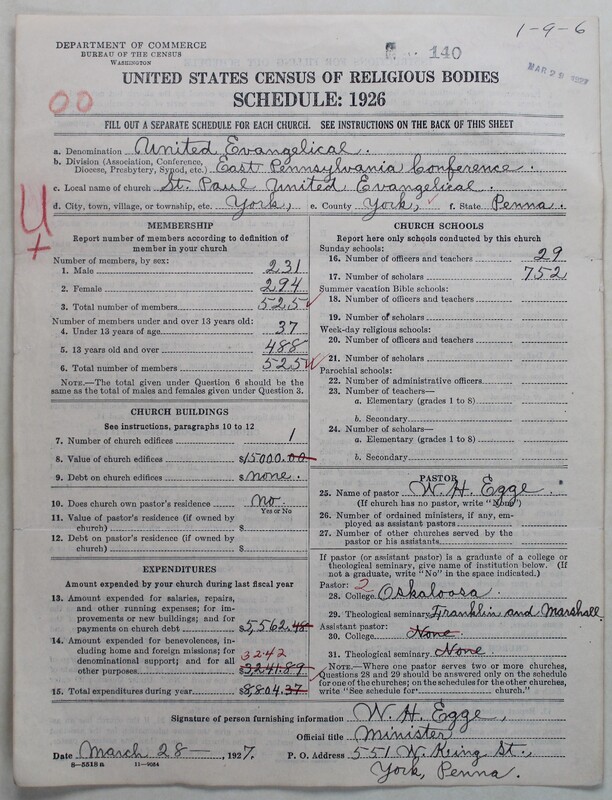 1-9-6
DEPARTMENT OF COMMERCE
BUREAU OF THE CENSUS
WASHINGTON
140
MAR 29 1927
UNITED STATES CENSUS OF RELIGIOUS BODIES
SCHEDULE: 1926
00
FILL OUT A SEPARATE SCHEDULE FOR EACH CHURCH. SEE INSTRUCTIONS ON THE BACK OF THIS SHEET
a. Denomination United Evangelical.
b. Division (Association, Conference, Diocese, Presbytery, Synod, etc.) East Pennsylvania Conference.
c. Local name of church St. Paul United Evangelical.
d. City, town, village, or township, etc. York, e. County York, f. State Penna.
U
+
MEMBERSHIP
Report number of members according to definition of
member in your church
Number of members, by sex:
1. Male 231
2. Female 294
3. Total number of members 525
Number of members under and over 13 years old:
4. Under 13 years of age 37
5. 13 years old and over 488
6. Total number of members 525
NOTE.—The total given under Question 6 should be the
same as the total of males and females given under Question 3.
CHURCH BUILDINGS
See instructions, paragraphs 10 to 12
7. Number of church edifices 1
8. Value of church edifices $15000.00
9. Debt on church edifices $ none.
10. Does church own pastor's residence? no.
Yes or No
11. Value of pastor's residence (if owned by
church) $
12. Debt on pastor's residence (if owned by
church) $
EXPENDITURES
Amount expended by your church during last fiscal year
13. Amount expended for salaries, repairs,
and other running expenses; for im-
provements or new buildings; and for
payments on church debt $5,562.48
14. Amount expended for benevolences, in-
cluding home and foreign missions; for
denominational support; and for all
3242
other purposes $3241.89
15. Total expenditures during year $8,804.37
CHURCH SCHOOLS
Report here only schools conducted by this church
Sunday schools:
16. Number of officers and teachers 29
17. Number of scholars 752
Summer vacation Bible schools:
18. Number of officers and teachers
19. Number of scholars
Week-day religious schools:
20. Number of officers and teachers
21. Number of scholars
Parochial schools:
22. Number of administrative officers
23. Number of teachers—
a. Elementary (grades 1 to 8)
b. Secondary
24. Number of scholars—
a. Elementary (grades 1 to 8)
b. Secondary
PASTOR
25. Name of pastor W. H. Egge.
(If church has no pastor, write "None")
26. Number of ordained ministers, if any, em-
ployed as assistant pastors
27. Number of other churches served by the
pastor or his assistants
If pastor (or assistant pastor) is a graduate of a college or
theological seminary, give name of institution below. (If
not a graduate, write "No" in the space indicated.)
Pastor: 2
28. College Oskaloosa
29. Theological seminary Franklin and Marshall.
Assistant pastor:
30. College None.
31. Theological seminary None.
NOTE.—Where one pastor serves two or more churches,
Questions 28 and 29 should be answered only on the schedule
for one of the churches; on the schedules for the other churches,
write "See schedule for church."
Signature of person furnishing information W. H. Egge,
Official title Minister
Date March 28, 1927. P. O. Address 551 W. King St.
8-5518a 11-9084
York, Penna.